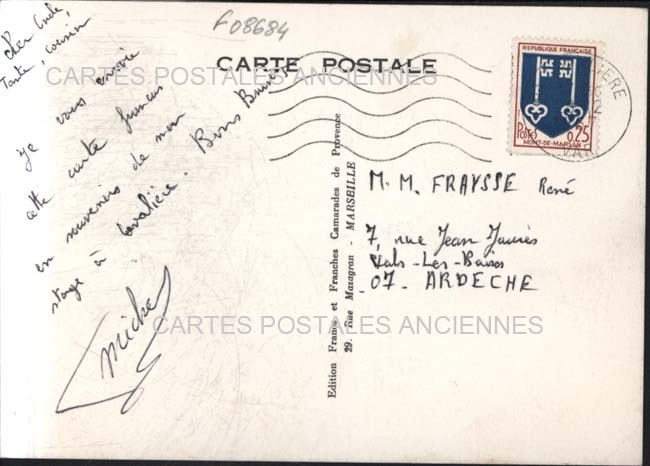 F08684
CARTE POSTALE
CARTES POSTALES ANCIENNES
Cher Oncle,
Tante, Cousin
Je vous envoie
cette carte
en souvenirs de mon
stage à Cavalière. Bons Baisers
Michel
Edition Francs et Franches Camarades de Provence
29, Rue Mazagran - MARSEILLE
REPUBLIQUE FRANÇAISE
POSTES 0,25
MONT-DE-MARSAN
VAR
M. M. FRAYSSE René
7, rue Jean Jaurès
Vals-Les-Bains
07. ARDECHE
CARTES POSTALES ANCIENNES